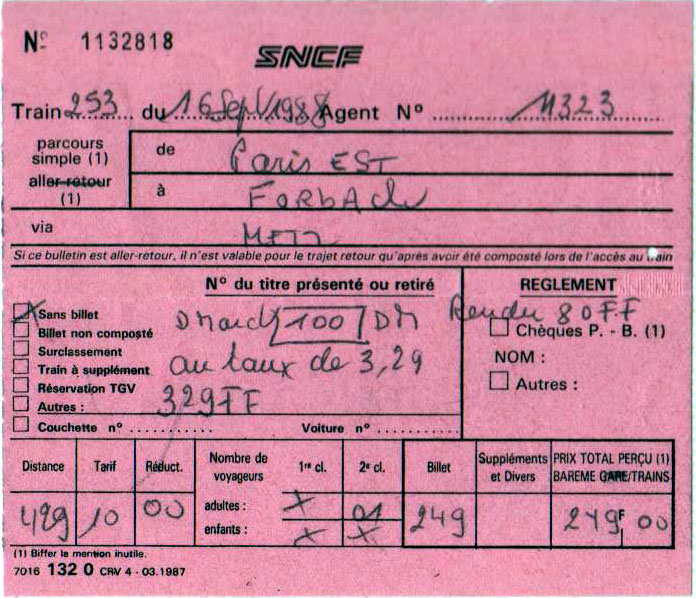 Nº 1132818
SNCF
Train 253 du 16 Sept 1988 Agent Nº 11323
parcours simple (1)
de Paris EST
aller-retour (1)
à Forbach
via METZ
Si ce bulletin est aller-retour, il n'est valable pour le trajet retour qu'après avoir été composté lors de l'accès au train
Nº du titre présenté ou retiré
REGLEMENT
X Sans billet
Billet non composté
Surclassement
Train à supplément
Réservation TGV
Autres :
Couchette nº ........... Voiture nº ...........
DMarck 100 DM
au taux de 3,29
329FF
Rendu 80FF
Chèques P. - B. (1)
NOM :
Autres :
Distance Tarif Réduct. Nombre de voyageurs 1re cl. 2e cl. Billet Suppléments et Divers PRIX TOTAL PERÇU (1) BAREME GARE/TRAINS
429 10 00 adultes : X 01 249 249F 00
enfants : X X
(1) Biffer la mention inutile.
7016 132 0 CRV 4 - 03.1987